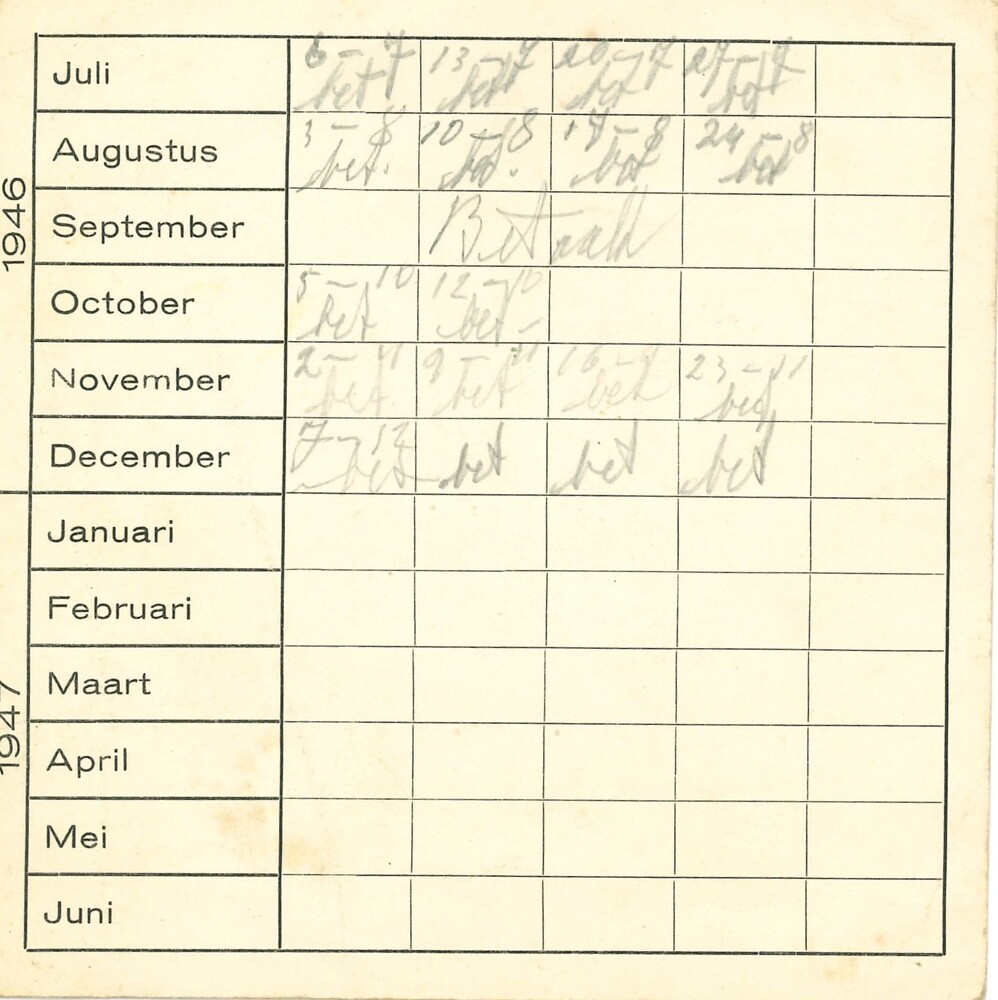 1946
Juli 6-7 bet 13-7 bet 20-7 bet 27-7 bet
Augustus 3-8 bet. 10-8 bet. 17-8 bet 24-8 bet
September Betaald
October 5-10 bet 12-10 bet-
November 2-11 bet. 9-11 bet 16-11 bet 23-11 bet
December 7-12 bet bet bet bet
1947
Januari
Februari
Maart
April
Mei
Juni